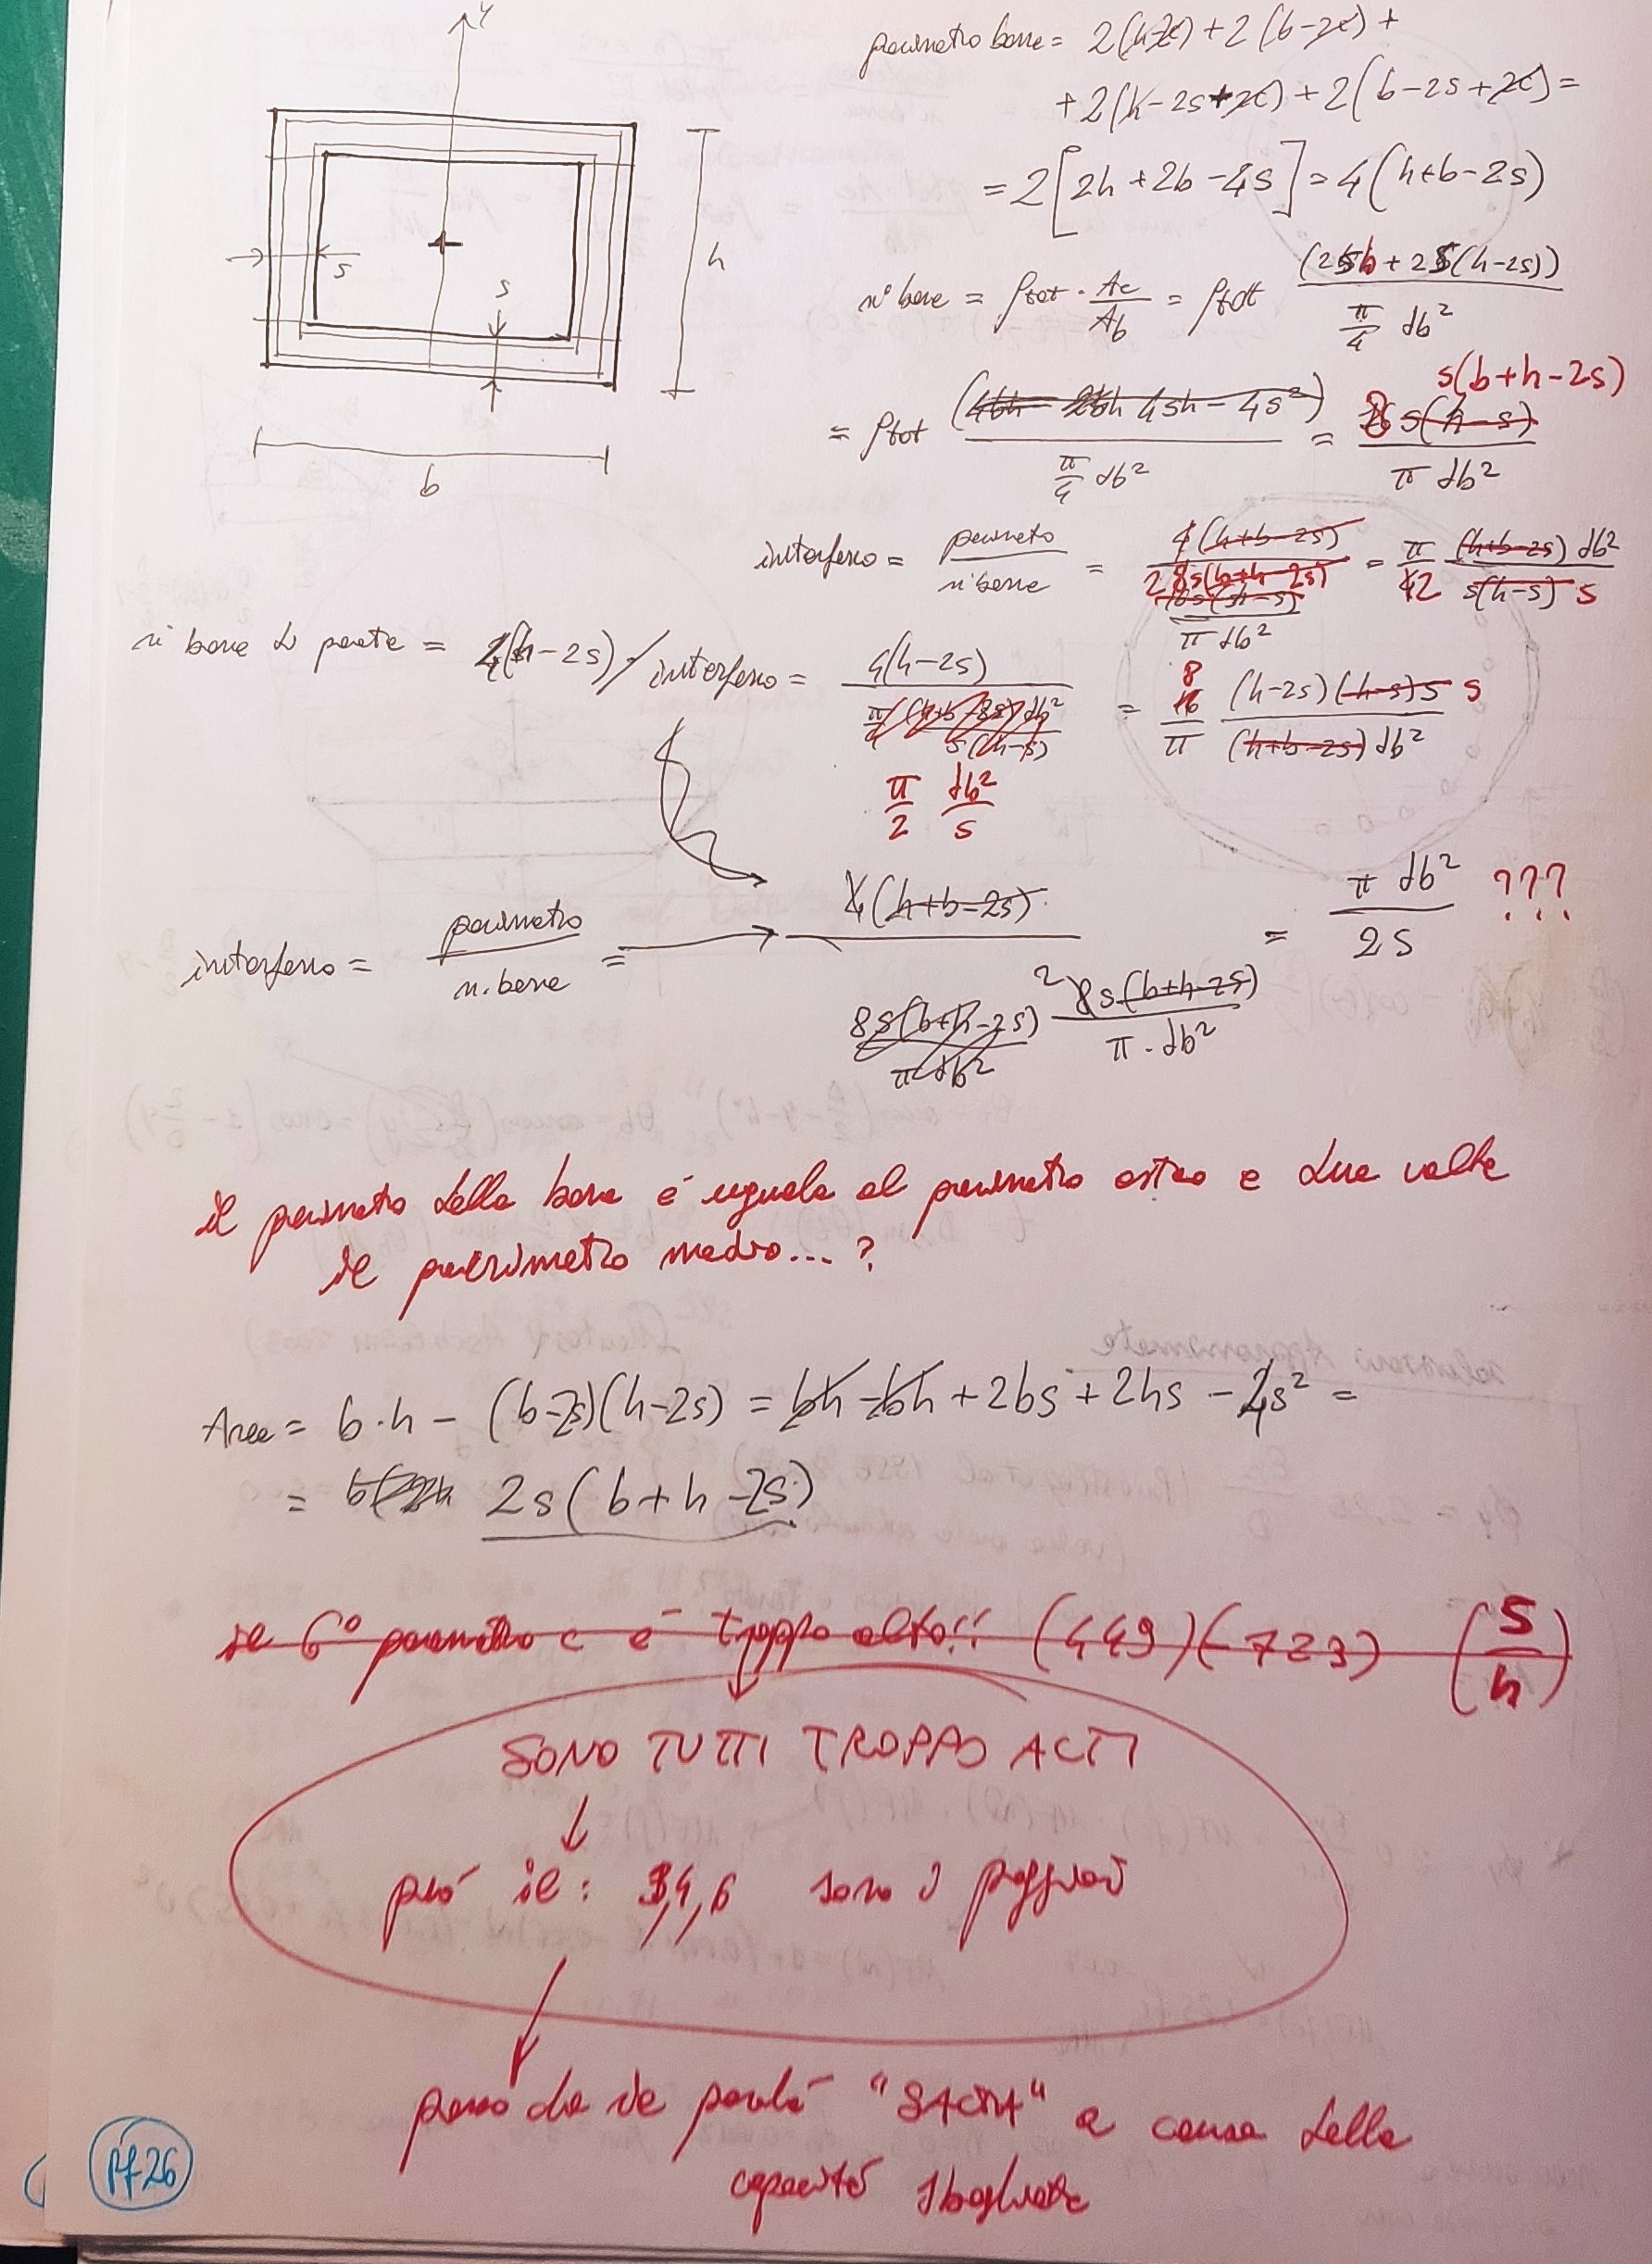 y
perimetro barre = 2(h-2c) + 2(b-2c) +
+ 2(h-2s+2c) + 2(b-2s+2c) =
= 2[2h+2b-4s] = 4(h+b-2s)
h
s
s
b
n° barre = ρtot · Ac/Ab = ρtot (2sb + 2s(h-2s)) / (π/4 db²)
= ρtot (4sh - 4s²) / (π/4 db²) = 8 s(b+h-2s) s(h-s) / (π db²)
interferro = perimetro / n° barre = 4(h+b-2s) / (2 8s(b+h-2s) / (π db²)) = π/2 (h+b-2s) db² / (s(h-s)) s
n° barre di parete = 4(h-2s) / interferro = 4(h-2s) / (π/4 (h+b-2s) db² / s(h-s)) = 8 16/π (h-2s)(h-s)s s / ((h+b-2s) db²)
π/2 db²/s
interferro = perimetro / n. barre = 4(h+b-2s) / (8s(b+h-2s)/(π db²)) 2 8s(b+h-2s)/(π·db²) = π db² / 2s ???
il perimetro delle barre é uguale al perimetro esterno e due volte
il perimetro medio...?
Area = b·h - (b-2s)(h-2s) = bh - bh + 2bs + 2hs - 4s² =
= 2s(b+h-2s)
il 6° parametro c é troppo alto!! (449)(-723) (s/h)
SONO TUTTI TROPPO ALTI
↓
però il: 3,4,6 sono i peggiori
penso che il perché "SALTA" a causa della
capacità sbagliate
Pf26